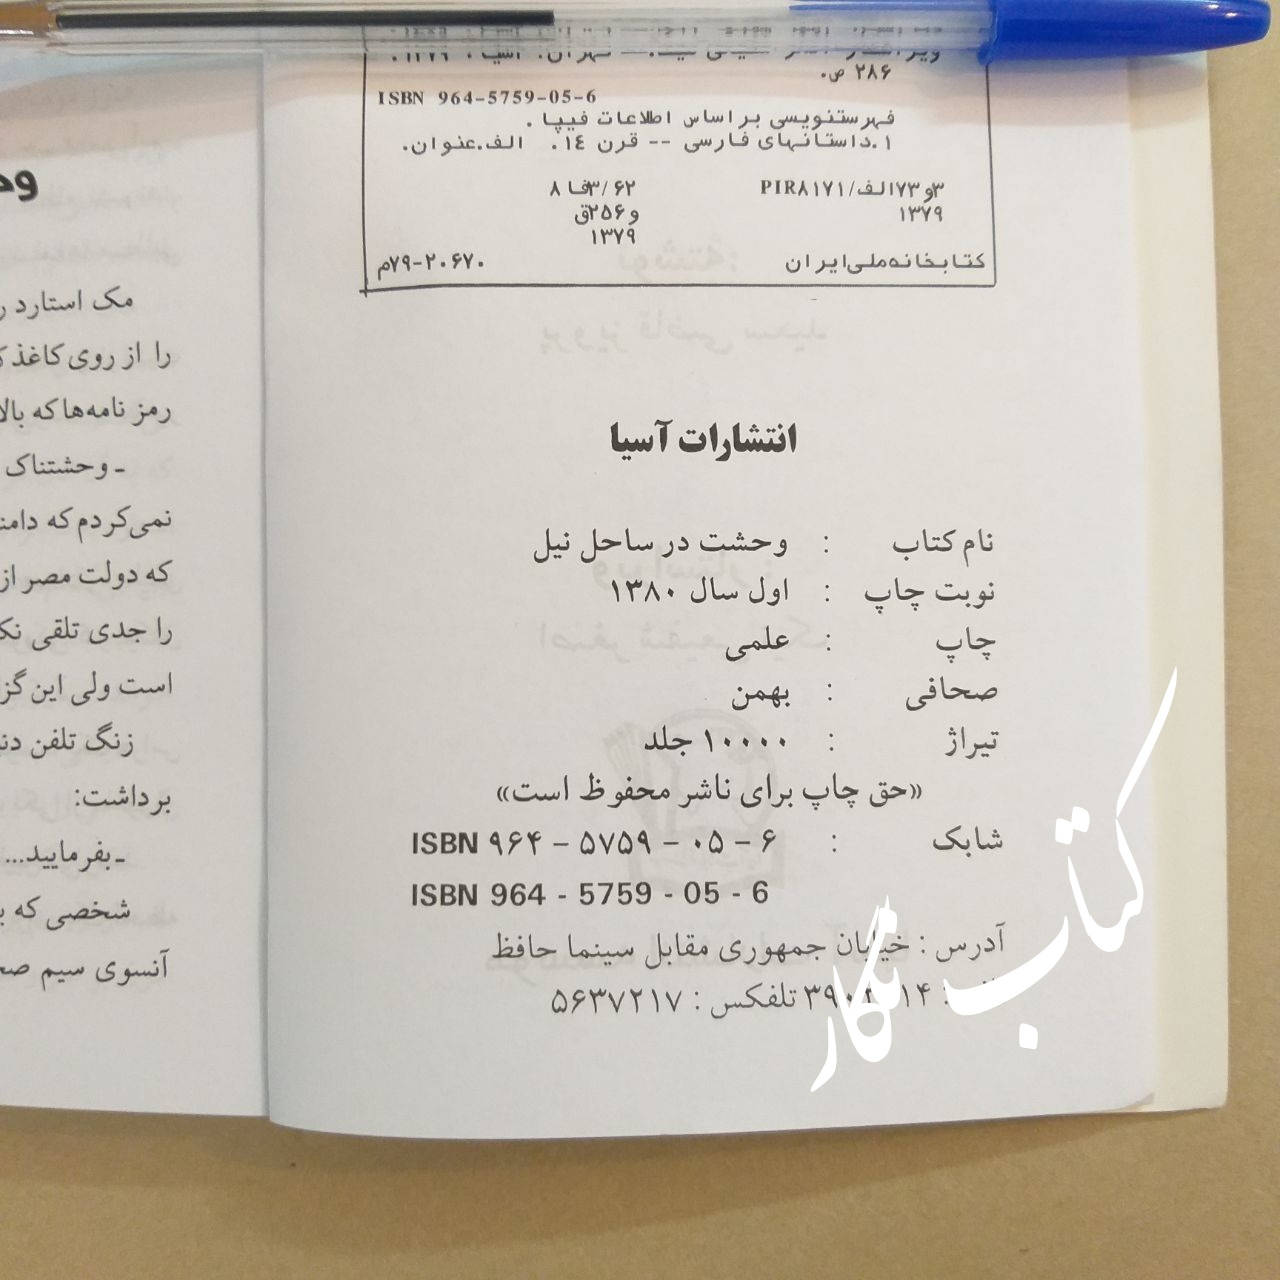 ۲۸۶ ص.
ISBN 964-5759-05-6
فهرستنویسی براساس اطلاعات فیپا .
۱.داستانهای فارسی -- قرن ۱٤. الف.عنوان.
۳و۷۳الف/PIR۸۱۷۱ ۸فا۳/۶۲
۱۳۷۹ و۲۵۶ق
۱۳۷۹
کتابخانه‌ملی‌ایران م۷۹-۲۰۶۷۰
انتشارات آسیا
نام کتاب : وحشت در ساحل نیل
نوبت چاپ : اول سال ۱۳۸۰
چاپ : علمی
صحافی : بهمن
تیراژ : ۱۰۰۰۰ جلد
«حق چاپ برای ناشر محفوظ است»
شابک : ISBN ۹۶۴ – ۵۷۵۹ – ۰۵ – ۶
ISBN 964 - 5759 - 05 - 6
آدرس : خیابان جمهوری مقابل سینما حافظ
تلفکس : ۵۶۳۷۲۱۷
کتاب نگار
مک استارد
را از روی کاغذ
رمز نامه‌ها که بالا
ـ وحشتناک
نمی‌کردم که
که دولت مصر از
را جدی تلقی
است ولی این
زنگ تلفن
برداشت:
ـ بفرمایید...
شخصی که
آنسوی سیم